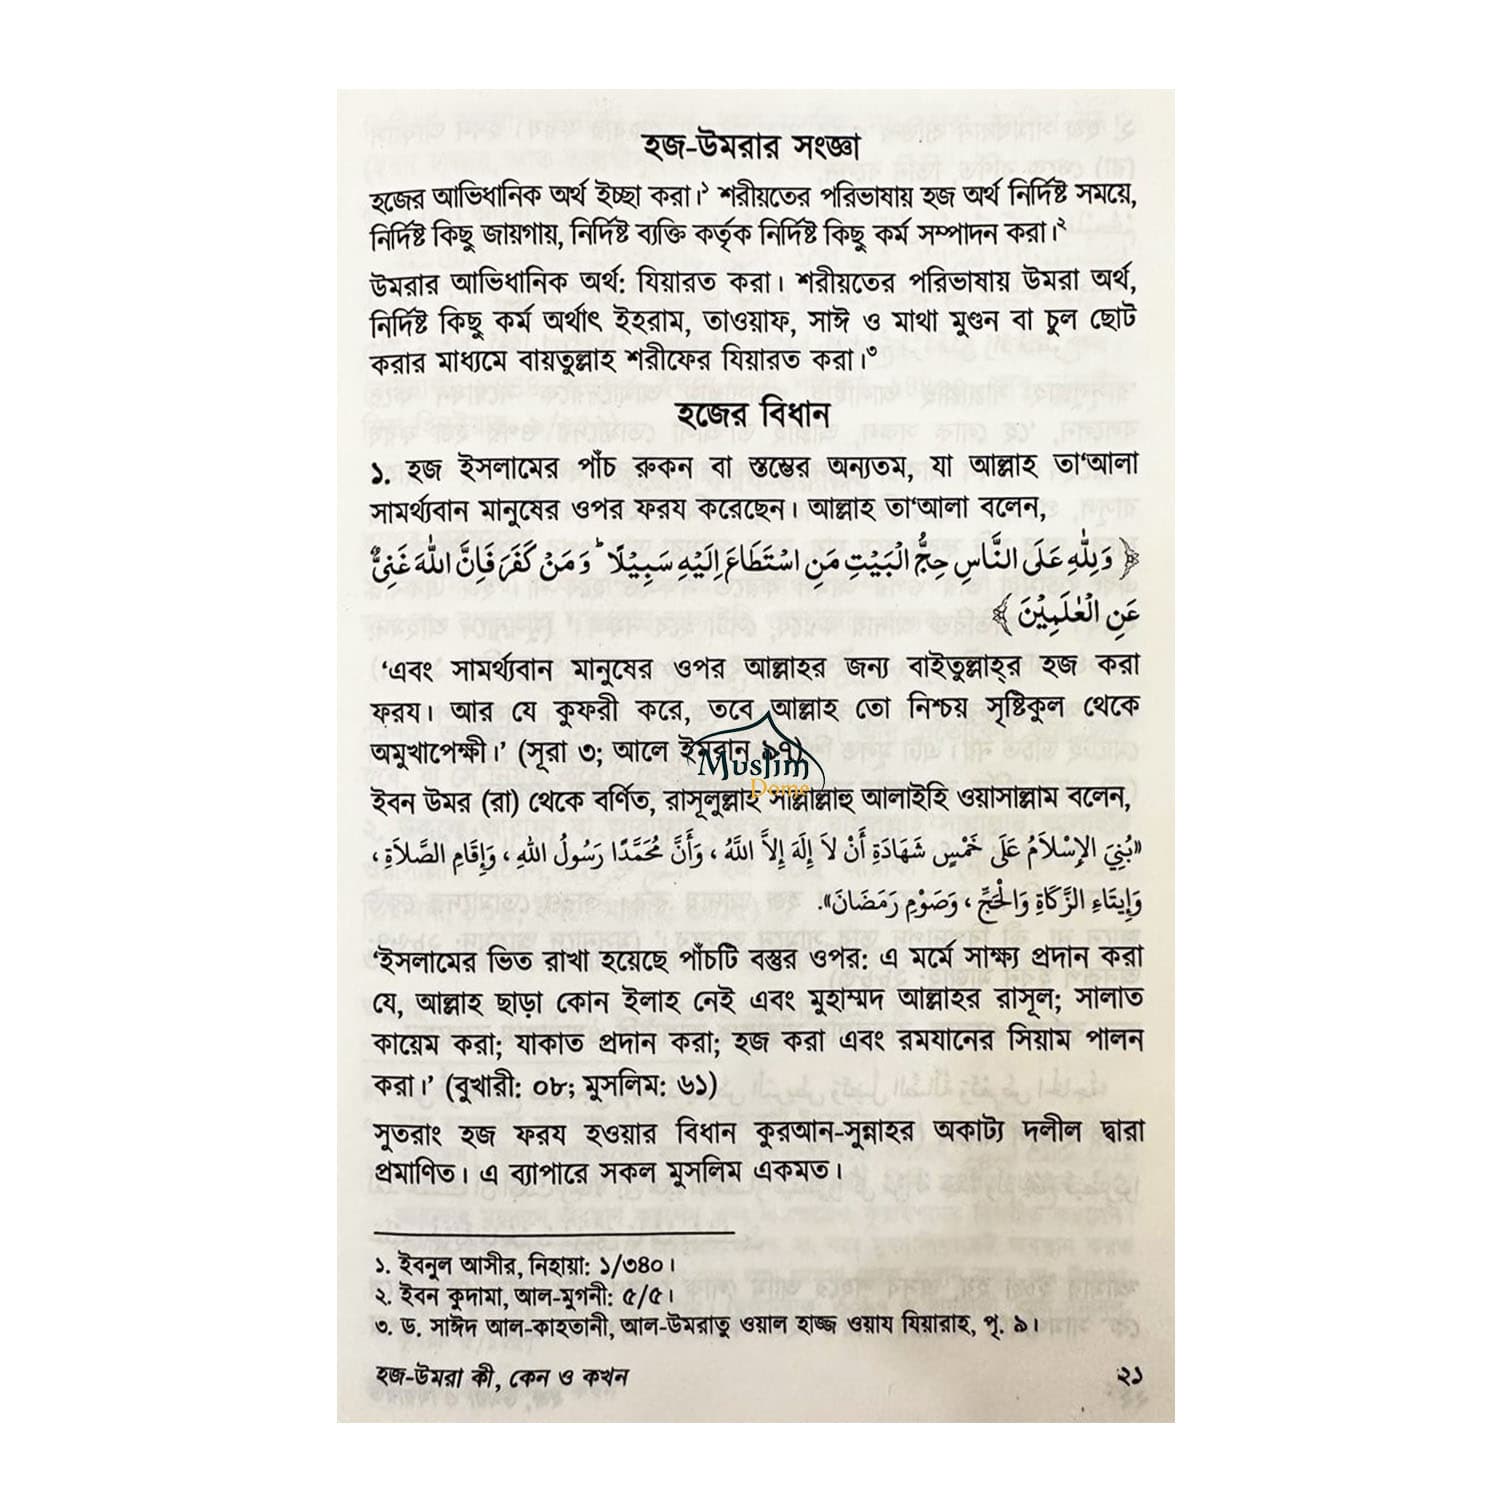 হজ-উমরার সংজ্ঞা
হজের আভিধানিক অর্থ ইচ্ছা করা।১ শরীয়তের পরিভাষায় হজ অর্থ নির্দিষ্ট সময়ে,
নির্দিষ্ট কিছু জায়গায়, নির্দিষ্ট ব্যক্তি কর্তৃক নির্দিষ্ট কিছু কর্ম সম্পাদন করা।২
উমরার আভিধানিক অর্থ: যিয়ারত করা। শরীয়তের পরিভাষায় উমরা অর্থ,
নির্দিষ্ট কিছু কর্ম অর্থাৎ ইহরাম, তাওয়াফ, সাঈ ও মাথা মুণ্ডন বা চুল ছোট
করার মাধ্যমে বায়তুল্লাহ শরীফের যিয়ারত করা।৩
হজের বিধান
১. হজ ইসলামের পাঁচ রুকন বা স্তম্ভের অন্যতম, যা আল্লাহ তা‘আলা
সামর্থ্যবান মানুষের ওপর ফরয করেছেন। আল্লাহ তা‘আলা বলেন,
﴿ وَلِلّٰهِ عَلَى النَّاسِ حِجُّ الْبَيْتِ مَنِ اسْتَطَاعَ اِلَيْهِ سَبِيْلًا ؕ وَمَنْ كَفَرَ فَاِنَّ اللّٰهَ غَنِىٌّ
عَنِ الْعٰلَمِيْنَ ﴾
‘এবং সামর্থ্যবান মানুষের ওপর আল্লাহর জন্য বাইতুল্লাহ্‌র হজ করা
ফরয। আর যে কুফরী করে, তবে আল্লাহ তো নিশ্চয় সৃষ্টিকুল থেকে
অমুখাপেক্ষী।’ (সূরা ৩; আলে ইমরান ৯৭)
Muslim
Dome
ইবন উমর (রা) থেকে বর্ণিত, রাসূলুল্লাহ সাল্লাল্লাহু আলাইহি ওয়াসাল্লাম বলেন,
«بُنِيَ الإِسْلاَمُ عَلَى خَمْسٍ شَهَادَةِ أَنْ لاَ إِلَهَ إِلاَّ اللَّهُ ، وَأَنَّ مُحَمَّدًا رَسُولُ اللهِ ، وَإِقَامِ الصَّلاَةِ ،
وَإِيتَاءِ الزَّكَاةِ وَالْحَجِّ ، وَصَوْمِ رَمَضَانَ».
‘ইসলামের ভিত রাখা হয়েছে পাঁচটি বস্তুর ওপর: এ মর্মে সাক্ষ্য প্রদান করা
যে, আল্লাহ ছাড়া কোন ইলাহ নেই এবং মুহাম্মদ আল্লাহর রাসূল; সালাত
কায়েম করা; যাকাত প্রদান করা; হজ করা এবং রমযানের সিয়াম পালন
করা।’ (বুখারী: ০৮; মুসলিম: ৬১)
সুতরাং হজ ফরয হওয়ার বিধান কুরআন-সুন্নাহর অকাট্য দলীল দ্বারা
প্রমাণিত। এ ব্যাপারে সকল মুসলিম একমত।
১. ইবনুল আসীর, নিহায়া: ১/৩৪০।
২. ইবন কুদামা, আল-মুগনী: ৫/৫।
৩. ড. সাঈদ আল-কাহতানী, আল-উমরাতু ওয়াল হাজ্জ ওয়ায যিয়ারাহ, পৃ. ৯।
হজ-উমরা কী, কেন ও কখন ২১